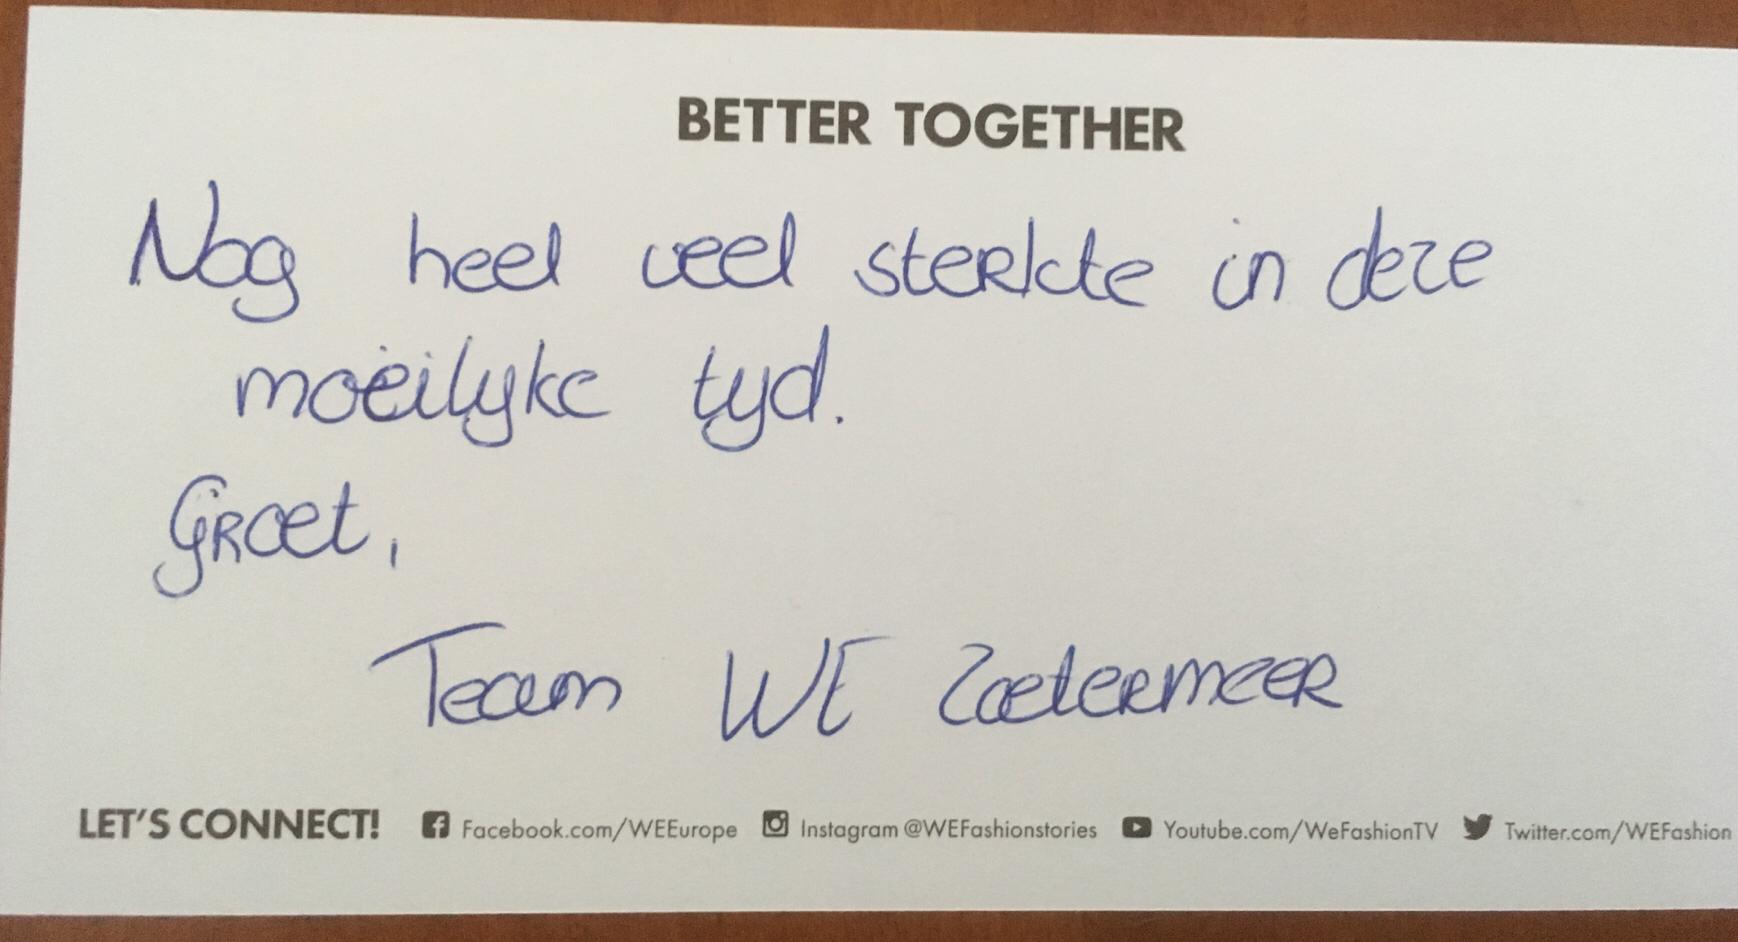 BETTER TOGETHER
Nog heel veel sterkte in deze
moeilyke tyd.
Groet,
Team WE Zoetermeer
LET'S CONNECT! Facebook.com/WEEurope Instagram @WEFashionstories Youtube.com/WeFashionTV Twitter.com/WEFashion